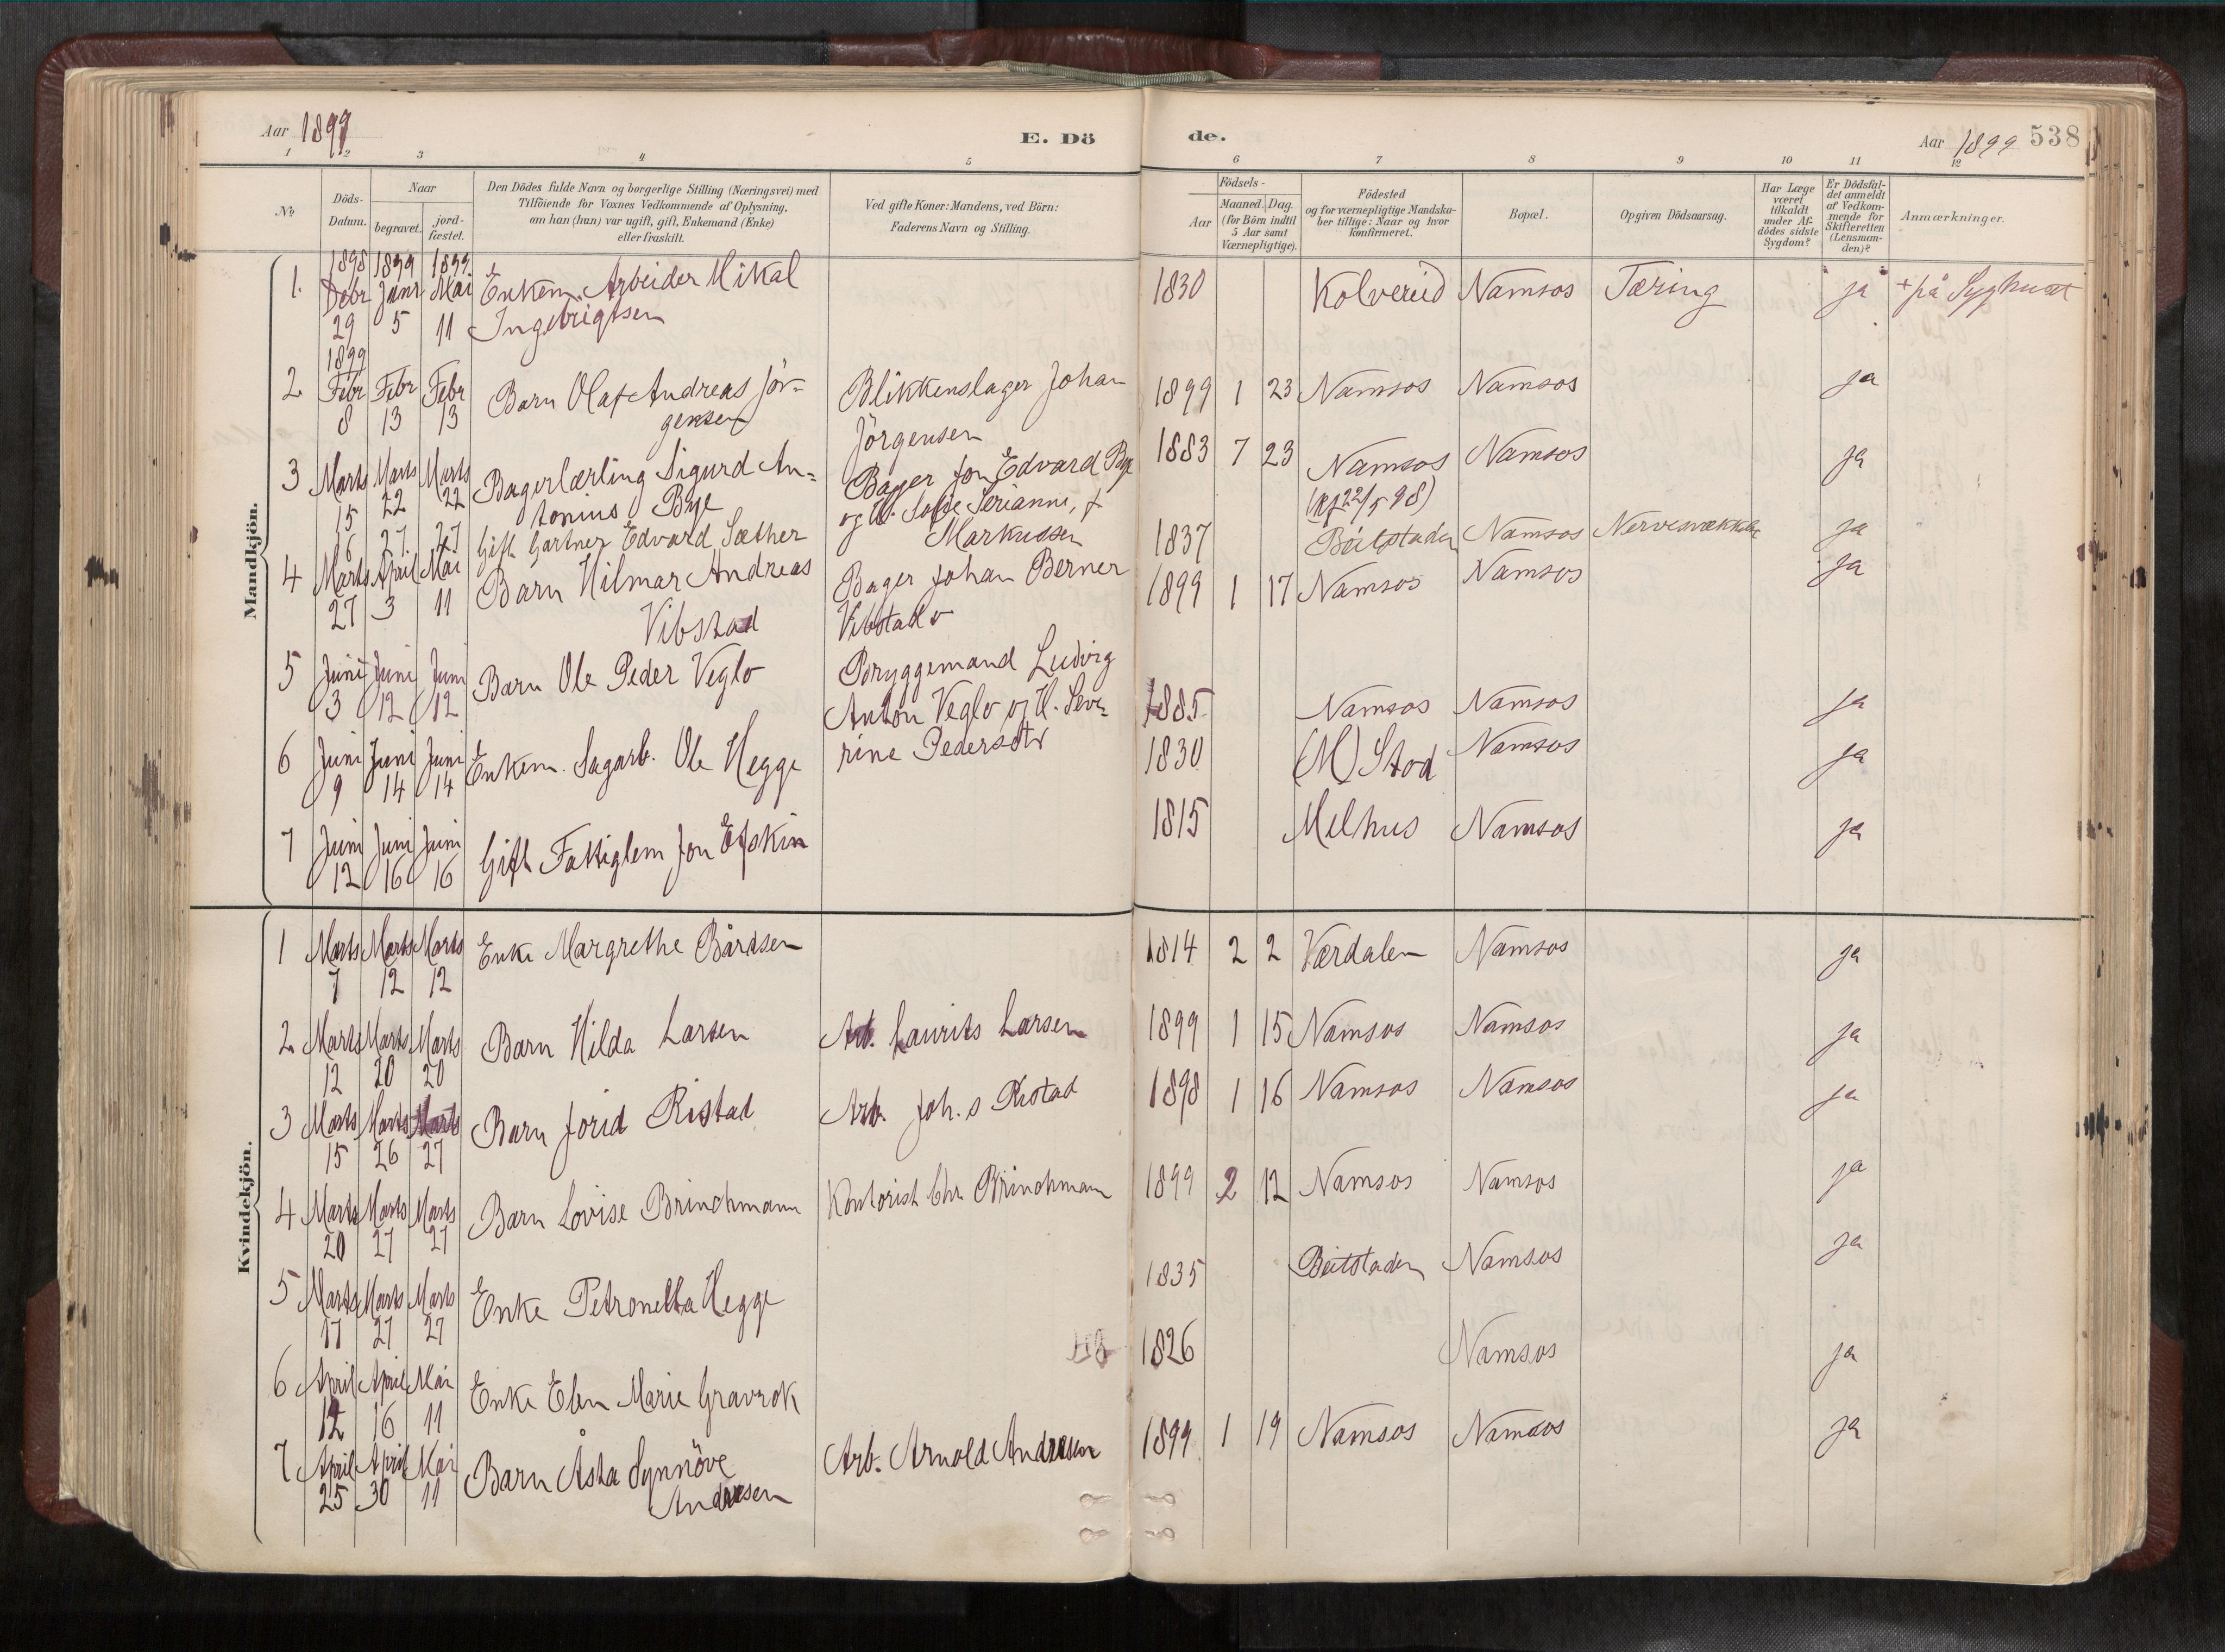 Aar 1899
E. Dö
de.
Aar 1899 538
1 2 3 4 5 6 7 8 9 10 11 12
No
Döds-
Datum.
Naar
begravet.
jord-
fæstet.
Den Dödes fulde Navn og borgerlige Stilling (Næringsvei) med
Tilföiende for Voxnes Vedkommende af Oplysning,
om han (hun) var ugift, gift, Enkemand (Enke)
eller fraskilt.
Ved gifte Koner: Mandens, ved Börn:
Faderens Navn og Stilling.
Födsels-
Aar
Maaned. Dag.
(for Börn indtil
5 Aar samt
Værnepligtige).
Födested
og for værnepligtige Mandska-
ber tillige: Naar og hvor
konfirmeret.
Bopæl.
Opgiven Dödsaarsag.
Har Læge
været
tilkaldt
under Af-
dödes sidste
Sygdom?
Er Dödsfal-
det anmeldt
af Vedkom-
mende for
Skifteretten
(Lensman-
den)?
Anmærkninger.
Mandkjön.
1898 1899 1899
1. Debr Janr Mai Enkem. Arbeider Mikal 1830 Kolvereid Namsos Tæring ja + på Syghuset
29 5 11 Ingebrigtsen
1899
2 Febr Febr Febr Barn Olaf Andreas Jör= Blikkenslager Johan 1899 1 23 Namsos Namsos ja
8 13 13 gensen Jörgensen
3 Marts Marts Marts Bagerlærling Sigurd An= Bager Jon Edvard Bye 1883 7 23 Namsos Namsos ja
15 22 22 tonius Bye og H. Serianne, f (kf 22/5 98)
Markussen
16 27. 27 Gift Gartner Edvard Sæther 1837 Beitstaden Namsos Nervesvækkelse ja
4 Marts April Mai Barn Hilmar Andreas Bager Johan Berner 1899 1 17 Namsos Namsos ja
27 3 11 Vibstad Vibstad
5 Juni Juni Juni Barn Ole Peder Veglo Bryggemand Ludvig
3 12 12 Anton Veglo og H. Seve= 1885 Namsos Namsos ja
rine Pedersdtr
6 Juni Juni Juni Enkem. Sagarb. Ole Hegge 1830 (M) Stod Namsos ja
9 14 14
7 Juni Juni Juni Gift Fattiglem Jon Efskin 1815 Melhus Namsos ja
12 16 16
Kvindekjön.
1 Marts Marts Marts Enke Margrethe Bårdsen 1814 2 2 Værdalen Namsos ja
7 12 12
2 Marts Marts Marts Barn Hilda Larsen Arb. Laurits Larsen 1899 1 15 Namsos Namsos ja
12 20 20
3 Marts Marts Marts Barn Jorid Ristad Arb. Joh.s Ristad 1898 1 16 Namsos Namsos ja
15 26 27
4 Marts Marts Marts Barn Lovise Brinchmann Kontorist Chr. Brinchmann 1899 2 12 Namsos Namsos ja
20 27 27
5 Marts Marts Marts Enke Petronella Hegge 1835 Beitstaden Namsos ja
17 27 27
6 April April Mai Enke Elen Marie Gravrok 1826 Namsos ja
12 16 11
7 April April Mai Barn Åsta Synnöve Arb. Arnold Andresen 1899 1 19 Namsos Namsos ja
25 30 11 Andresen